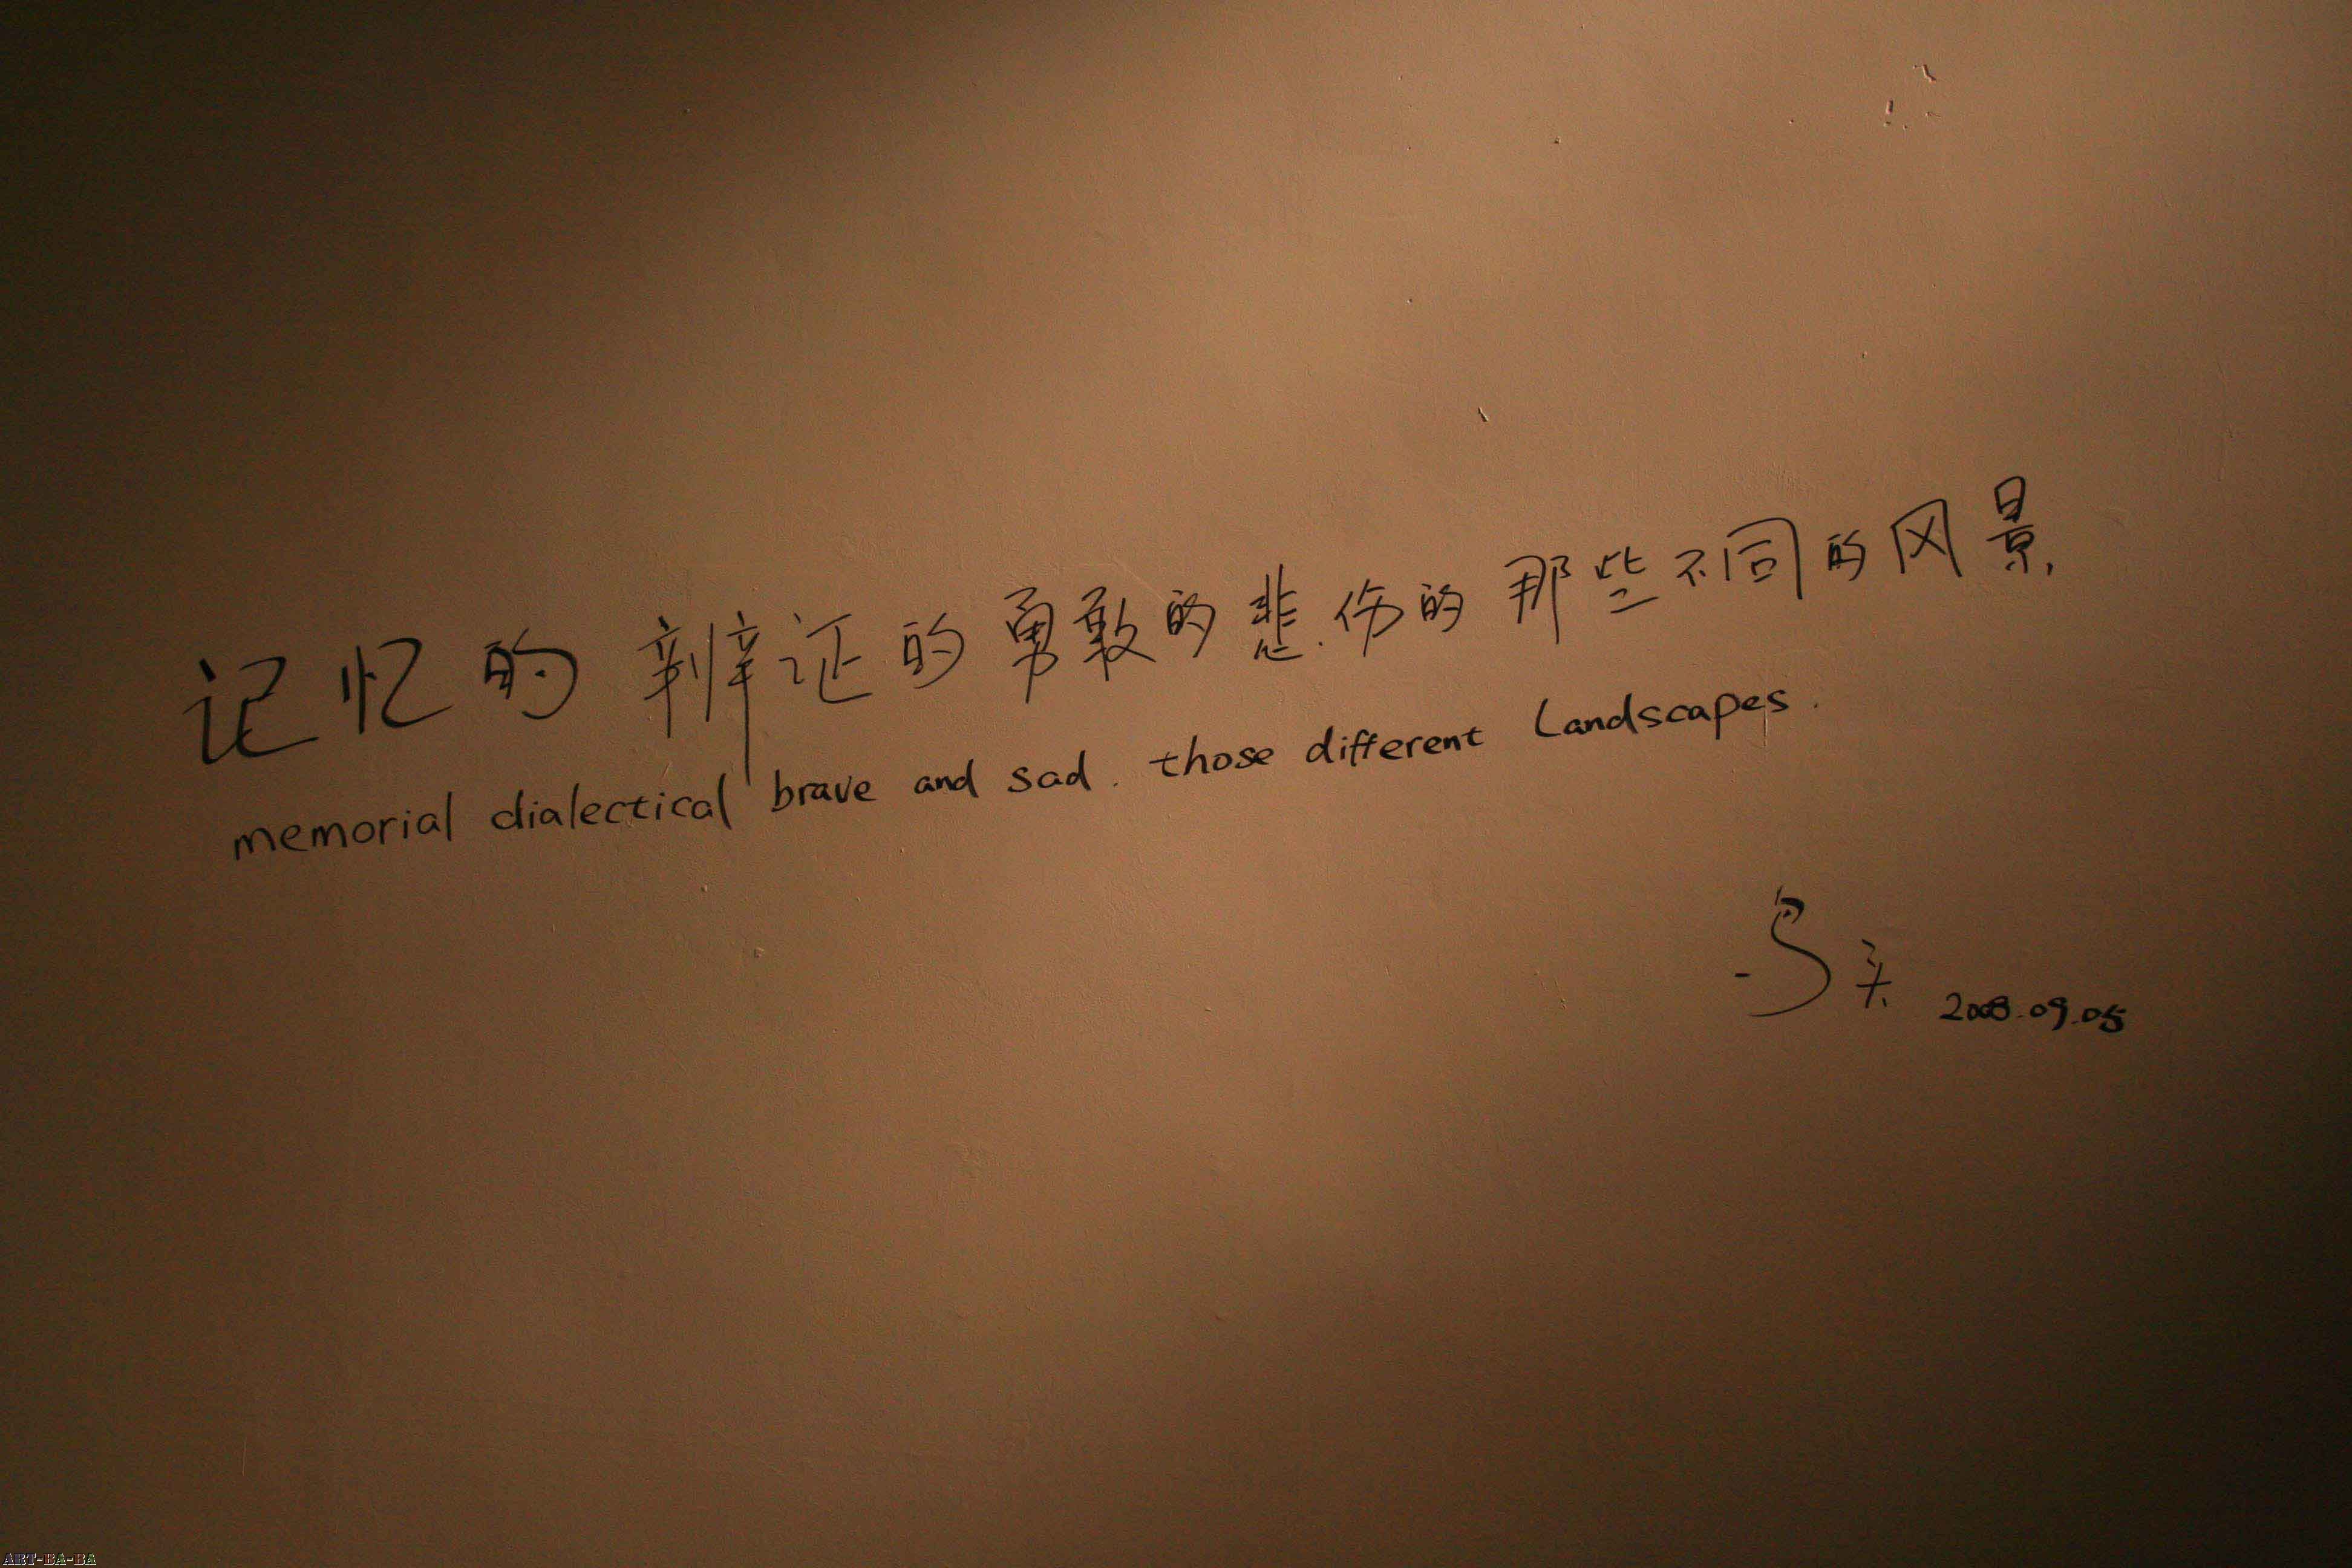 记忆的辨证的勇敢的悲伤的那些不同的风景,
memorial dialectical brave and sad. those different Landscapes.
2008.09.05
ART-BA-BA